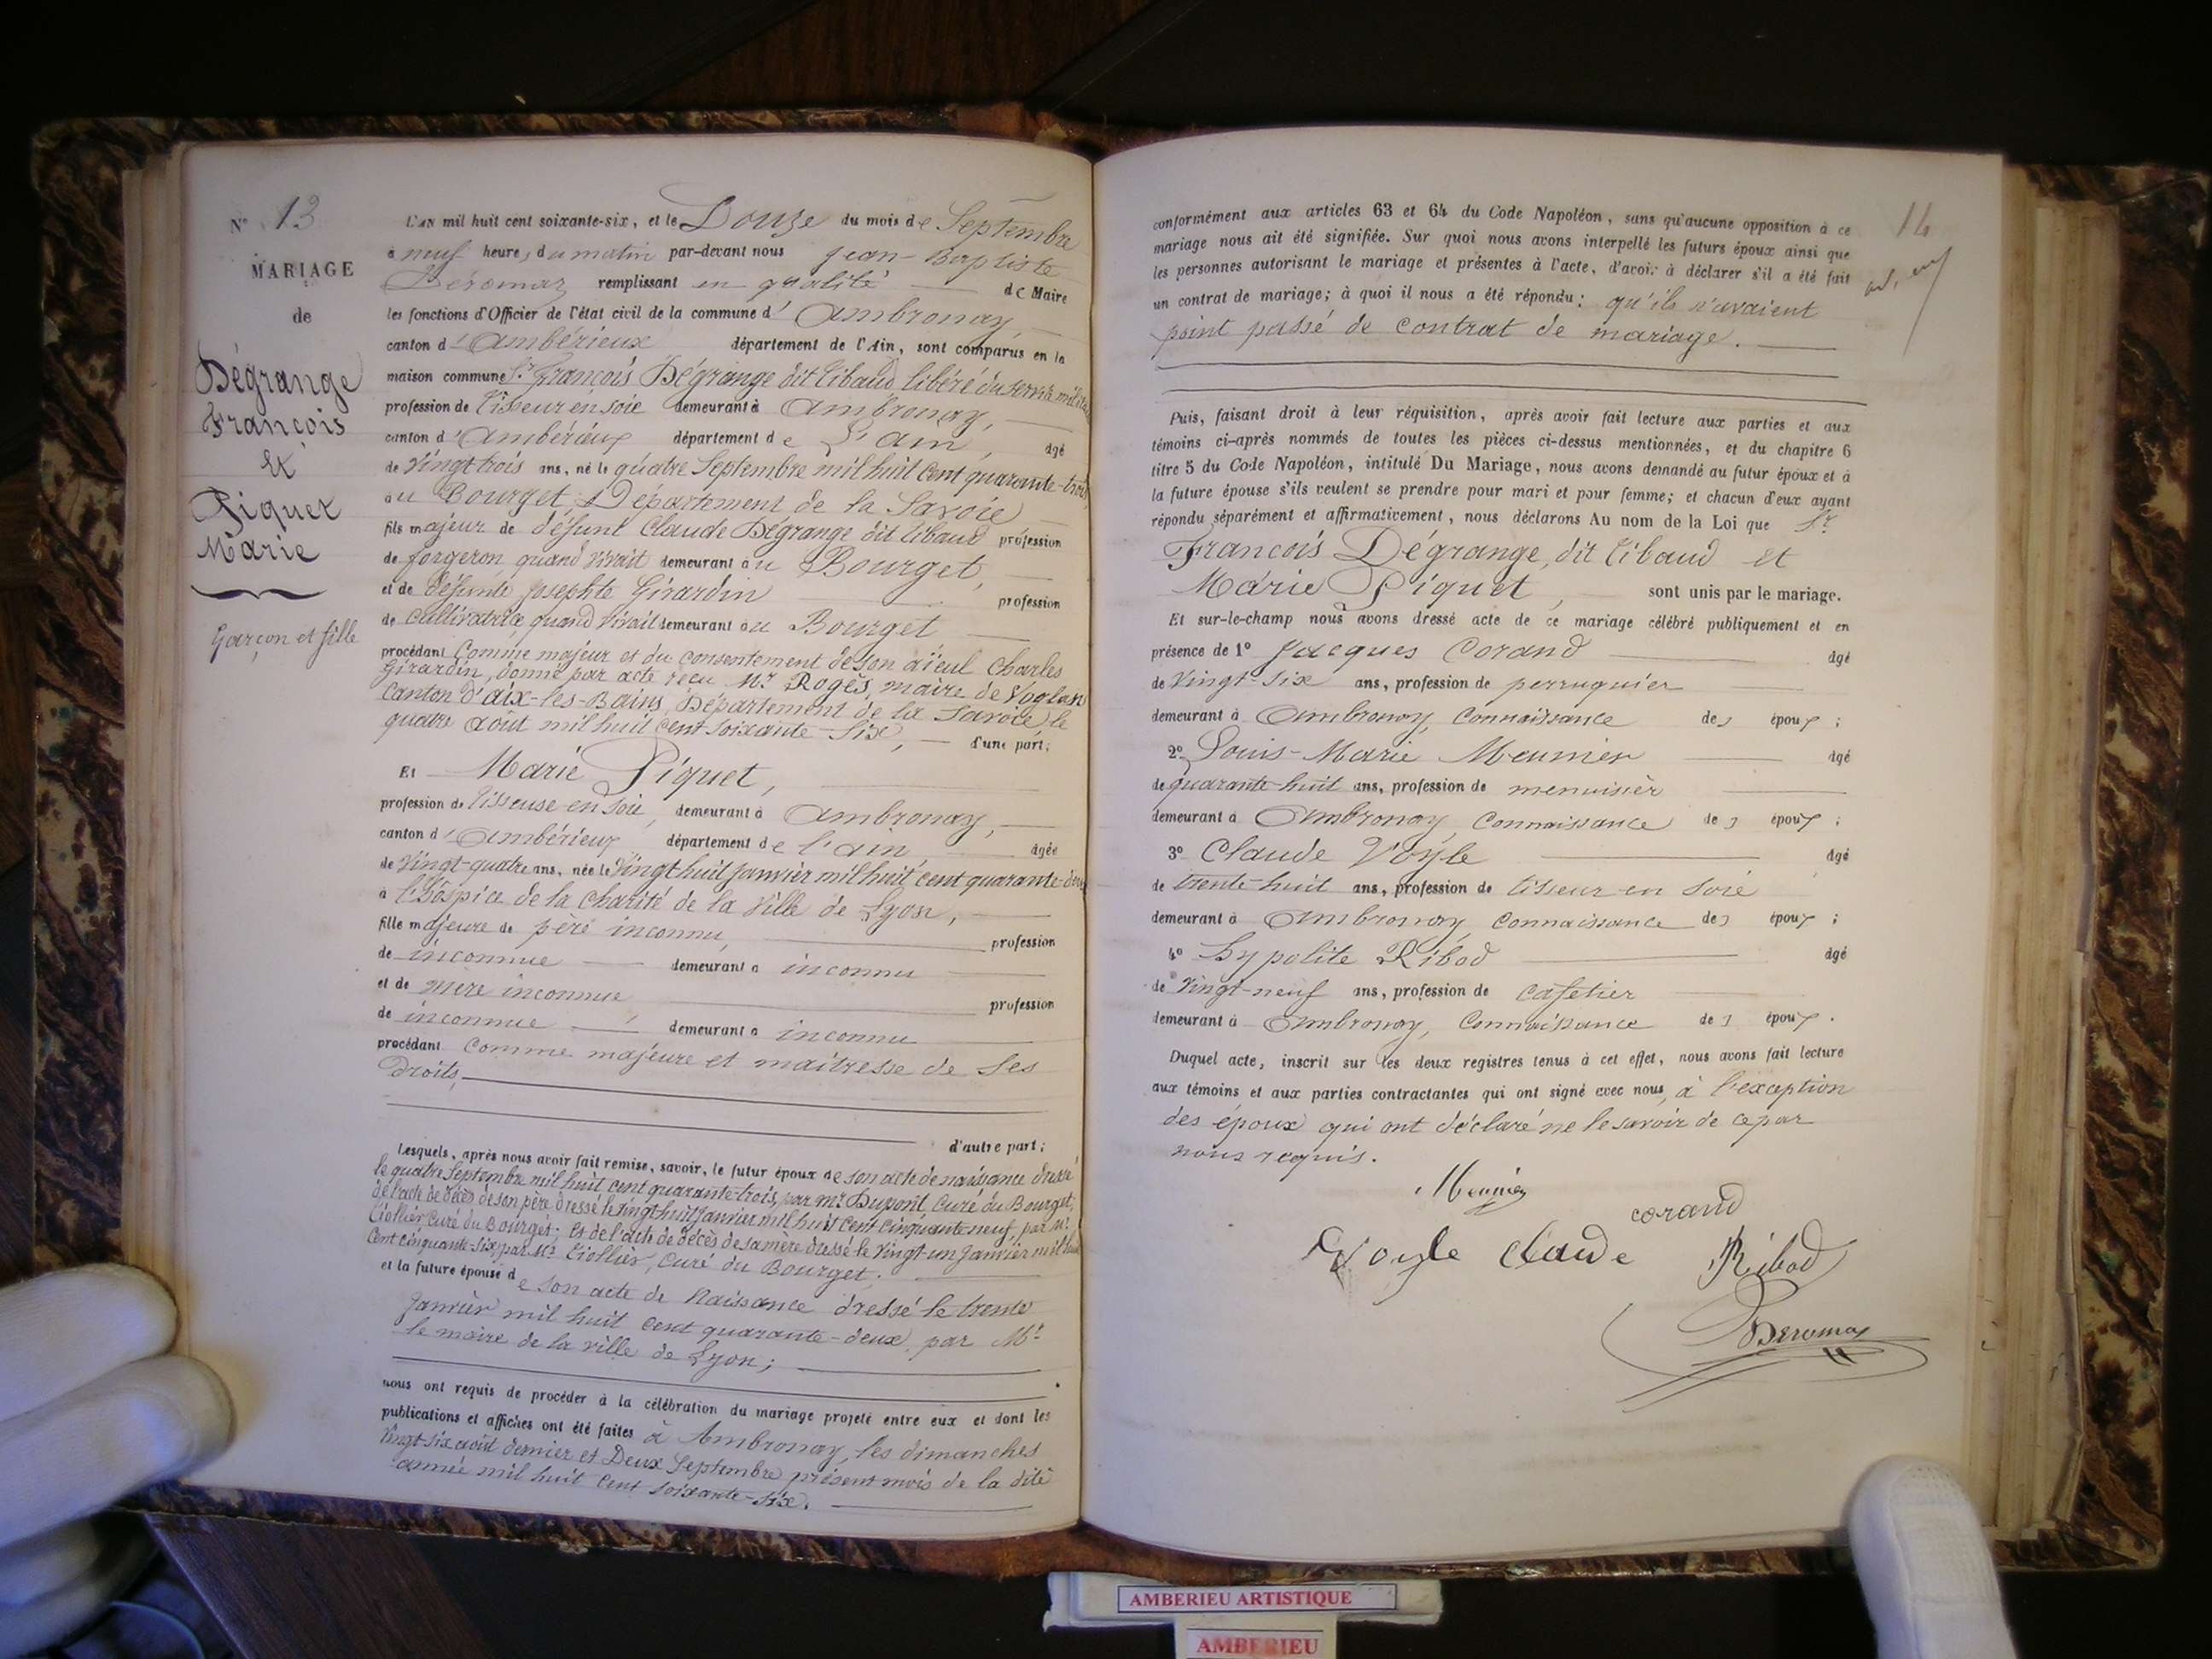 N° 13
MARIAGE
de
Dégrange
François
&
Piquet
Marie
Garçon et fille
L'AN mil huit cent soixante-six, et le Douze du mois de Septembre
à neuf heures du matin par-devant nous Jean-Baptiste
Béromaz remplissant en qualité de Maire
les fonctions d'Officier de l'état civil de la commune d'Ambronay
canton d'Ambérieux département de l'Ain, sont comparus en la
maison commune Sr. François Dégrange dit Tibaud libéré du service militaire
profession de Tisseur en soie demeurant à Ambronay,
canton d'Ambérieux département de L'ain, âgé
de Vingt trois ans, né le quatre Septembre mil huit cent quarante-trois
au Bourget, Département de la Savoie
fils majeur de défunt Claude Dégrange dit Tibaud profession
de forgeron quand vivait demeurant au Bourget,
et de défunte Josephte Girardin profession
de Cultivatrice quand vivait demeurant au Bourget
procédant Comme majeur et du consentement de son aïeul Charles
Girardin, donné par acte reçu Mr. Rogès, maire de Voglan
Canton d'aix-les-Bains, Département de la Savoie, le
quatre août mil huit cent soixante-six, d'une part;
Et Marie Piquet,
profession de Tisseuse en soie, demeurant à Ambronay,
canton d'Ambérieux département de l'ain âgée
de Vingt-quatre ans, née le Vingt huit Janvier mil huit cent quarante-deux
à l'hospice de la Charité de la Ville de Lyon,
fille majeure de père inconnu, profession
de inconnue demeurant à inconnu
et de mère inconnue profession
de inconnue demeurant à inconnu
procédant Comme majeure et maîtresse de ses
Droits,
d'autre part;
Lesquels, après nous avoir fait remise, savoir, le futur époux de son acte de naissance dressé
le quatre Septembre mil huit cent quarante-trois, par Mr. Dupont, Curé du Bourget;
de l'acte de décès de son père dressé le vingt huit Janvier mil huit cent cinquante neuf, par Mr.
Tiollier Curé du Bourget; et de l'acte de décès de sa mère dressé le Vingt-un Janvier mil huit
Cent cinquante-six par Mr. Tiollier, Curé du Bourget.
et la future épouse de son acte de Naissance dressé le trente
Janvier mil huit cent quarante-deux, par Mr.
le maire de la ville de Lyon;
nous ont requis de procéder à la célébration du mariage projeté entre eux et dont les
publications et affiches ont été faites à Ambronay, les dimanches
Vingt six août dernier et Deux Septembre présent mois de la dite
année mil huit Cent soixante-six.
14
conformément aux articles 63 et 64 du Code Napoléon, sans qu'aucune opposition à ce
mariage nous ait été signifiée. Sur quoi nous avons interpellé les futurs époux ainsi que
les personnes autorisant le mariage et présentes à l'acte, d'avoir à déclarer s'il a été fait
un contrat de mariage; à quoi il nous a été répondu: qu'ils n'avaient
point passé de contrat de mariage.
Puis, faisant droit à leur réquisition, après avoir fait lecture aux parties et aux
témoins ci-après nommés de toutes les pièces ci-dessus mentionnées, et du chapitre 6
titre 5 du Code Napoléon, intitulé Du Mariage, nous avons demandé au futur époux et à
la future épouse s'ils veulent se prendre pour mari et pour femme; et chacun d'eux ayant
répondu séparément et affirmativement, nous déclarons Au nom de la Loi que Sr.
François Dégrange, dit Tibaud et
Marie Piquet, sont unis par le mariage.
Et sur-le-champ nous avons dressé acte de ce mariage célébré publiquement et en
présence de 1° Jacques Corand âgé
de Vingt-six ans, profession de perruquier
demeurant à Ambronay, Connaissance des époux;
2° Louis-Marie Meunier âgé
de quarante-huit ans, profession de menuisier
demeurant à Ambronay, Connaissance des époux;
3° Claude Voyle âgé
de trente-huit ans, profession de tisseur en soie
demeurant à Ambronay, Connaissance des époux;
4° Hypolite Ribod âgé
de Vingt-neuf ans, profession de Cafetier
demeurant à Ambronay, Connaissance des époux.
Duquel acte, inscrit sur les deux registres tenus à cet effet, nous avons fait lecture
aux témoins et aux parties contractantes qui ont signé avec nous, à l'exception
des époux qui ont déclaré ne le savoir de ce par
nous requis.
Meunier
corand
Voyle Claude Ribod
Beromaz
AMBERIEU ARTISTIQUE
AMBERIEU